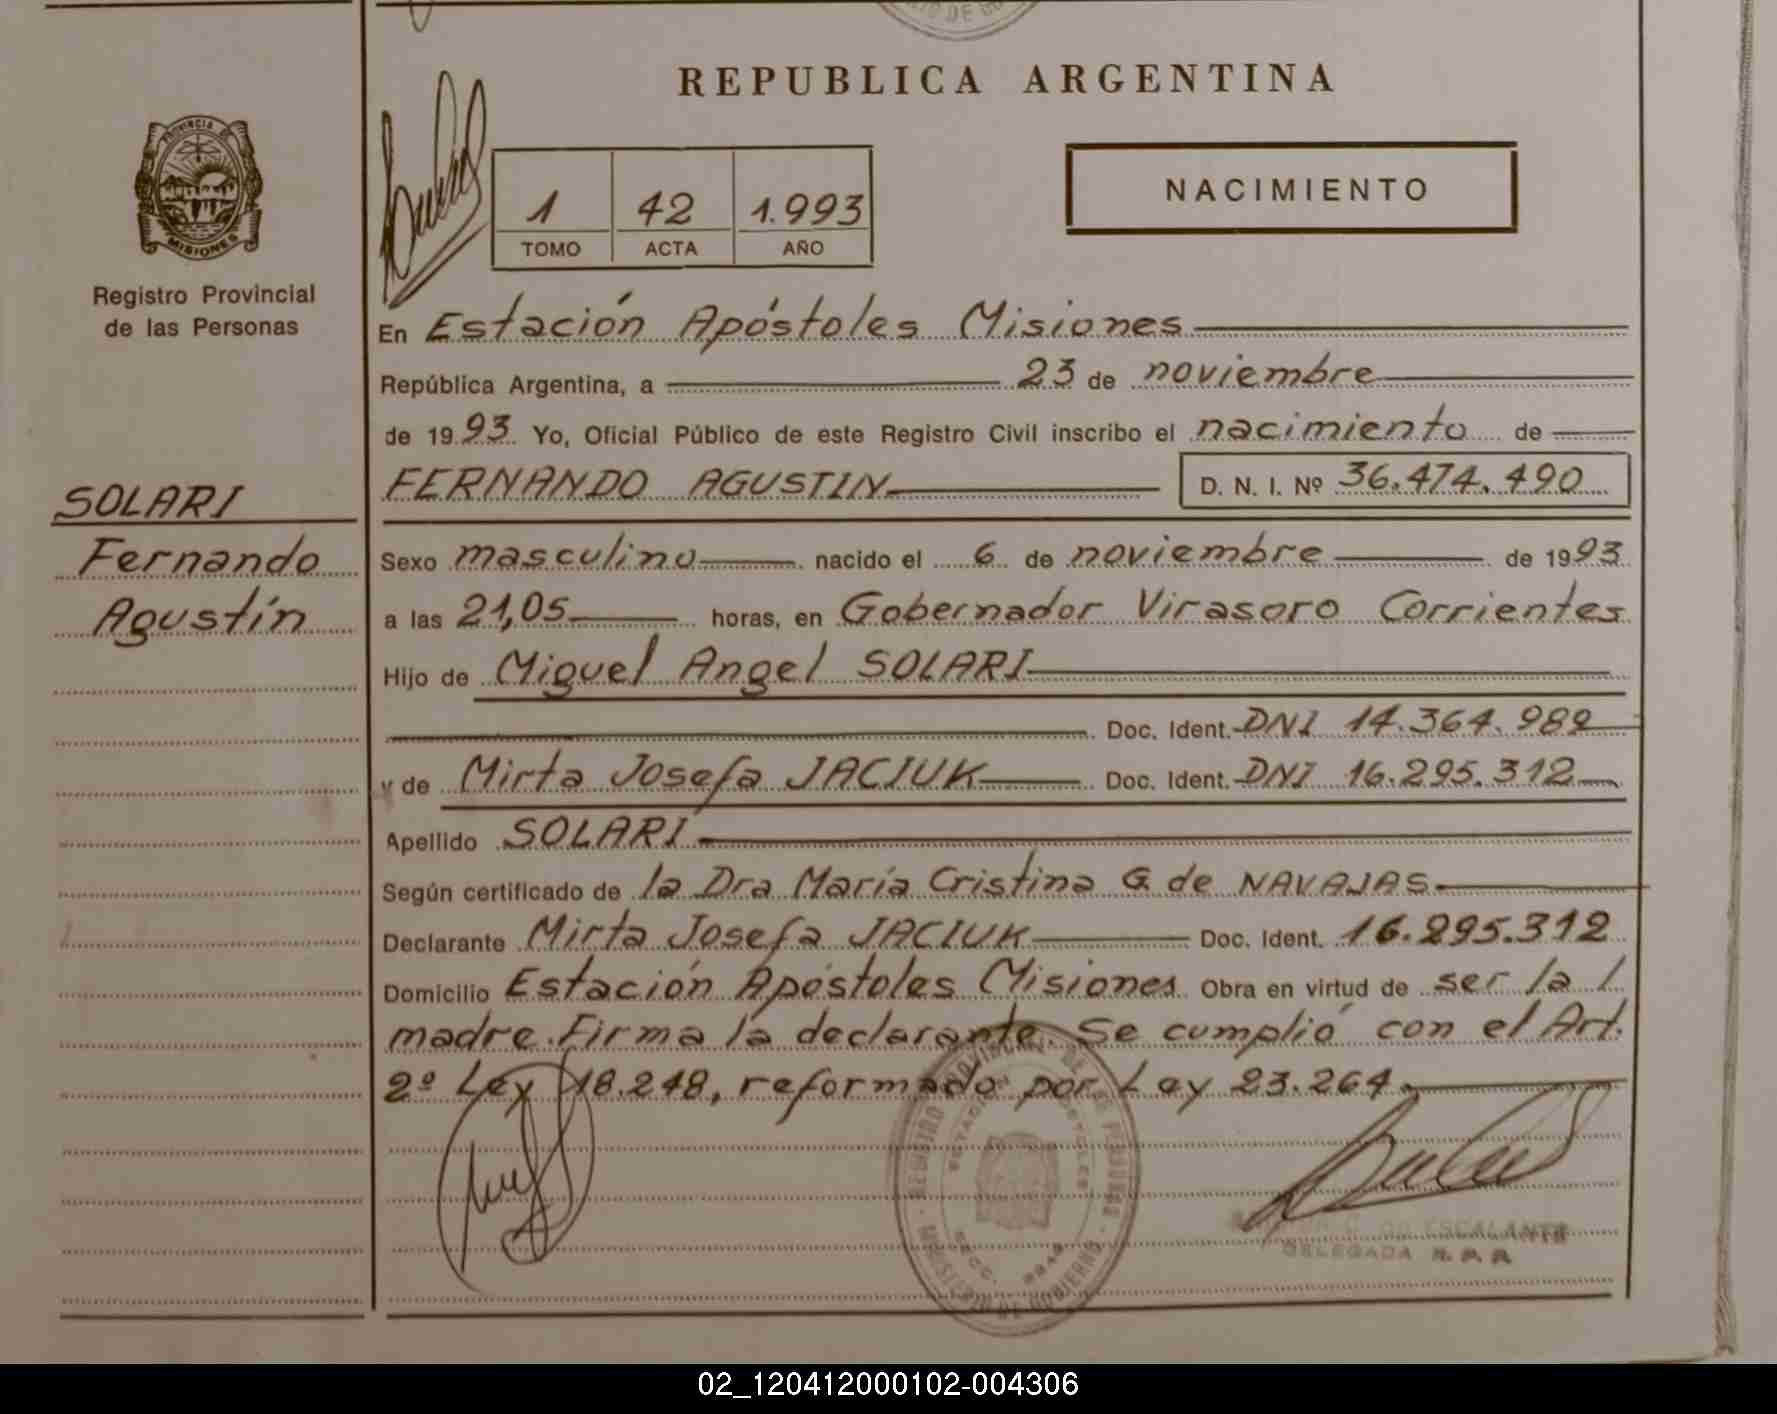 REPUBLICA ARGENTINA
PROVINCIA DE
MISIONES
Registro Provincial
de las Personas
1 42 1.993
TOMO ACTA AÑO
NACIMIENTO
En Estación Apóstoles Misiones
República Argentina, a 23 de noviembre
de 1993 Yo, Oficial Público de este Registro Civil inscribo el nacimiento de
FERNANDO AGUSTIN D. N. I. Nº 36.474.490
SOLARI
Fernando
Agustín
Sexo masculino nacido el 6 de noviembre de 1993
a las 21,05 horas, en Gobernador Virasoro Corrientes
Hijo de Miguel Angel SOLARI
Doc. Ident. DNI 14.364.982
y de Mirta Josefa JACIUK Doc. Ident. DNI 16.295.312
Apellido SOLARI
Según certificado de la Dra María Cristina G. de NAVAJAS
Declarante Mirta Josefa JACIUK Doc. Ident. 16.295.312
Domicilio Estación Apóstoles Misiones Obra en virtud de ser la
madre. Firma la declarante. Se cumplió con el Art.
2º Ley 18.248, reformado por Ley 23.264.
REGISTRO PROVINCIAL DE LAS PERSONAS
MINISTERIO DE GOBIERNO
DE ESCALANTE
DELEGADA R. P. P.
02_120412000102-004306